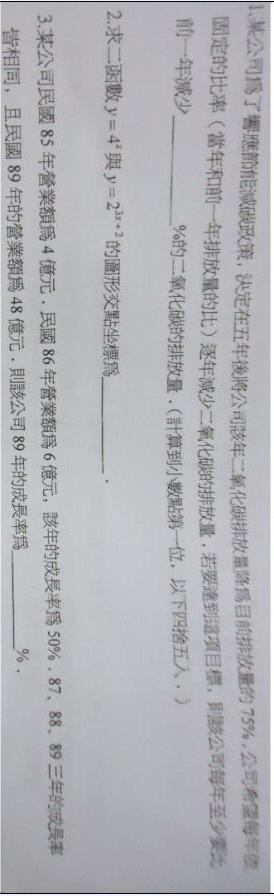 1.某公司爲了響應節能減碳政策，決定在五年後將公司該年二氧化碳排放量降爲目前排放量的 75%．公司希望每年依
固定的比率（當年和前一年排放量的比）逐年減少二氧化碳的排放量．若要達到這項目標，則該公司每年至少要比
前一年減少________%的二氧化碳的排放量．（計算到小數點第一位，以下四捨五入．）
2.求二函數 y = 4ˣ 與 y = 2³ˣ⁺² 的圖形交點坐標爲________．
3.某公司民國 85 年營業額爲 4 億元，民國 86 年營業額爲 6 億元，該年的成長率爲 50%．87、88、89 三年的成長率
皆相同，且民國 89 年的營業額爲 48 億元．則該公司 89 年的成長率爲________%．